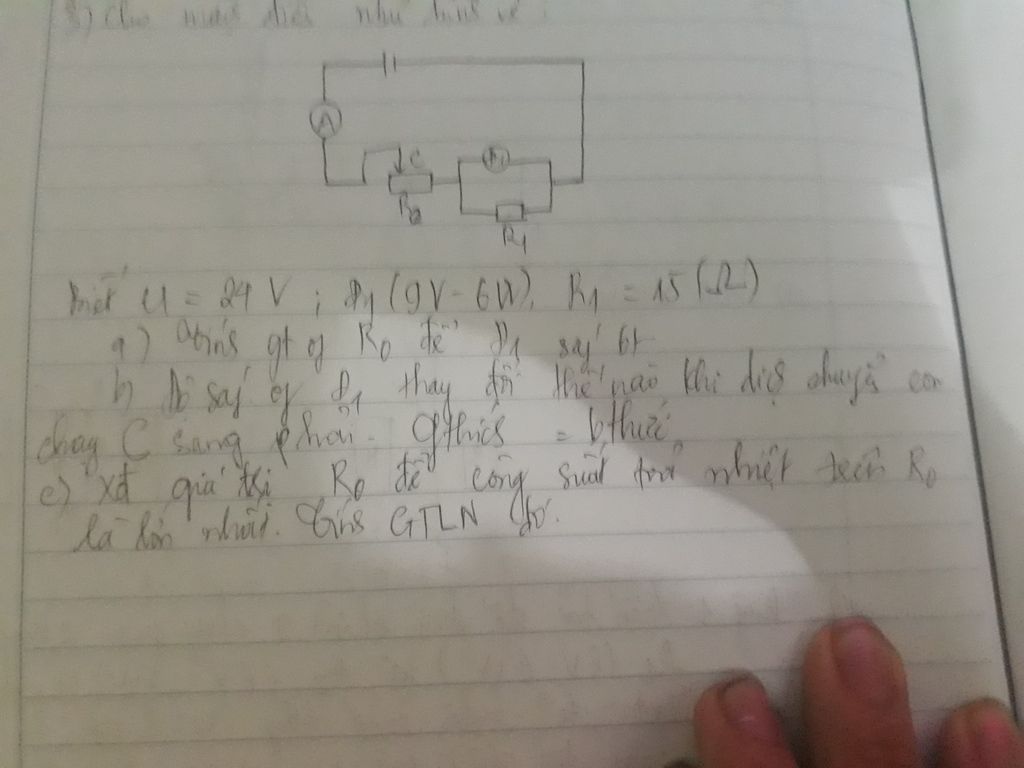 3) Cho mạch điện như hình vẽ:
A
C
R0
Đ1
R1
biết U = 24 V ; Đ1 (9V - 6W), R1 = 15 (Ω)
a) tính gt of R0 để Đ1 sáng bt
b) độ sáng of Đ1 thay đổi thế nào khi dịch chuyển con
chạy C sang phải. gthích = bthức
c) xđ giá trị R0 để công suất toả nhiệt trên R0
là lớn nhất. tính GTLN đó.